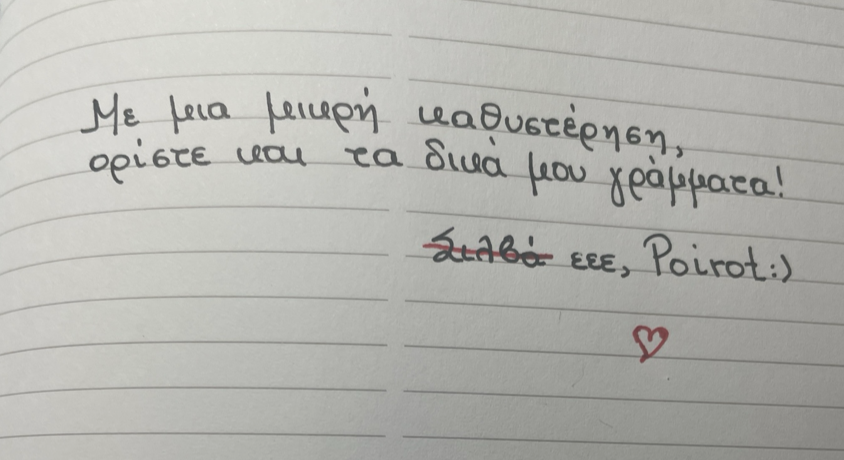 Με μια μικρή καθυστέρηση,
ορίστε και τα δικά μου γράμματα!
εεε, Poirot:)